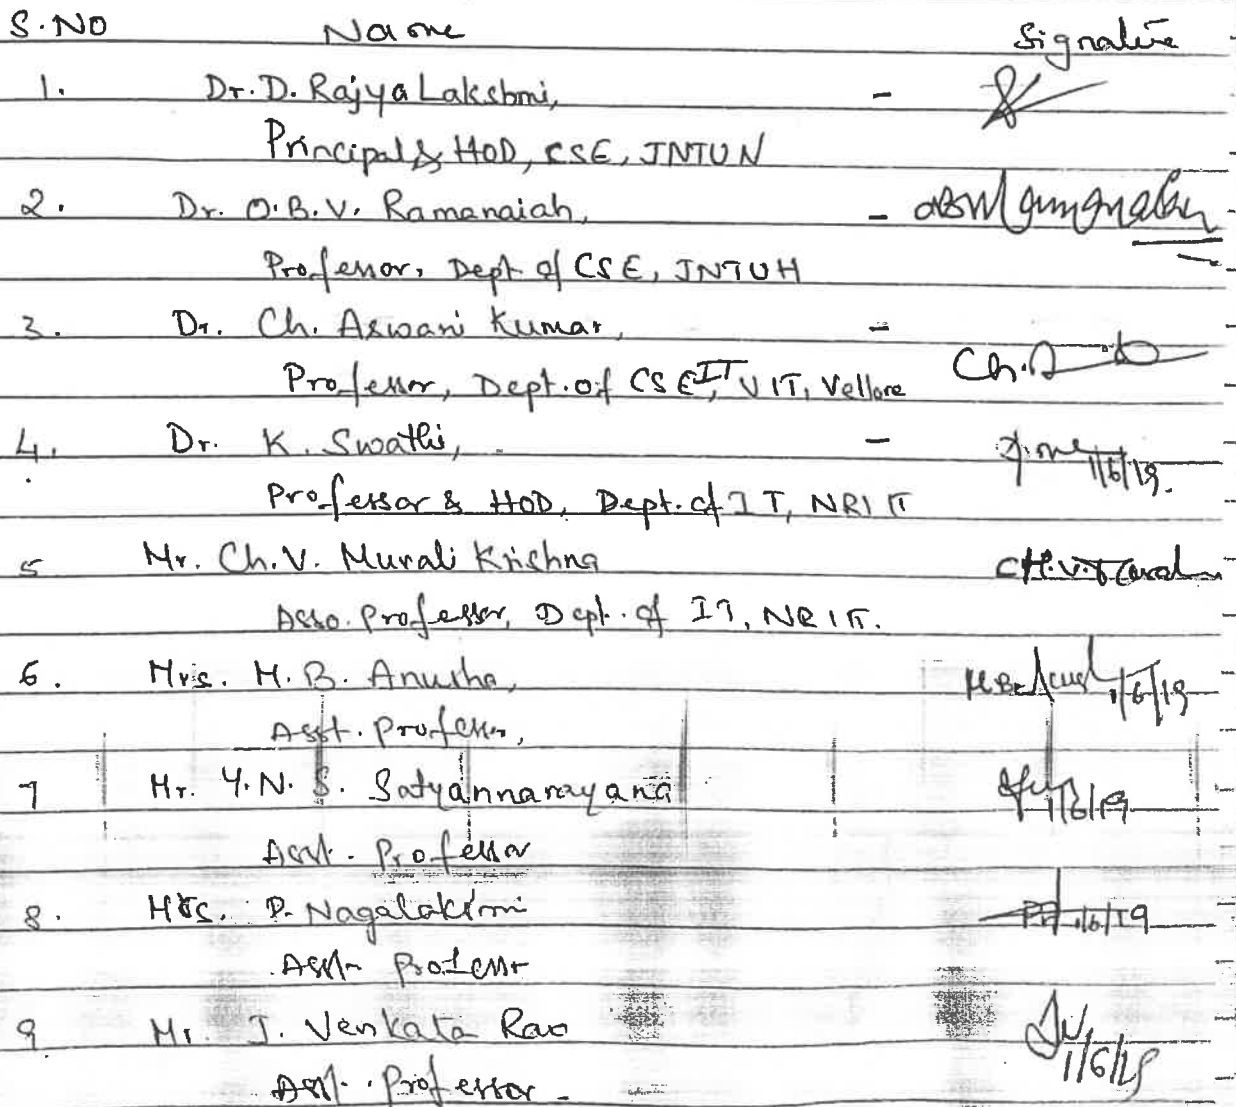 S.NO Name Signature
1. Dr. D. Rajya Lakshmi, -
Principal & HOD, CSE, JNTUN
2. Dr. O.B.V. Ramanaiah, -
Professor, Dept of CSE, JNTUH
3. Dr. Ch. Aswani Kumar, -
Professor, Dept. of CSE, IT VIT, Vellore Ch.
4. Dr. K. Swathi, - 1/6/19.
Professor & HOD, Dept. of IT, NRIIT
5 Mr. Ch.V. Murali Krishna CH.V.
Asso. Professor, Dept. of IT, NRIIT.
6. Mrs. M.B. Anusha, M.B. 1/6/19
Asst. Professor,
7 Mr. Y.N.S. Satyannarayana 1/6/19
Asst. Professor
8. Mrs. P. Nagalakshmi 1/6/19
Asst. Professor
9 Mr. J. Venkata Rao 1/6/19
Asst. Professor